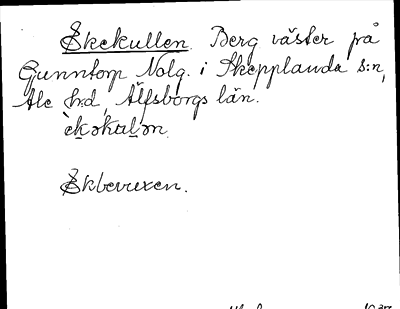 Ekekullen. Berg väster på
Gunntorp Nolg. i Skepplanda s:n,
Ale h:d, Älfsborgs län.
Ekbevuxen.